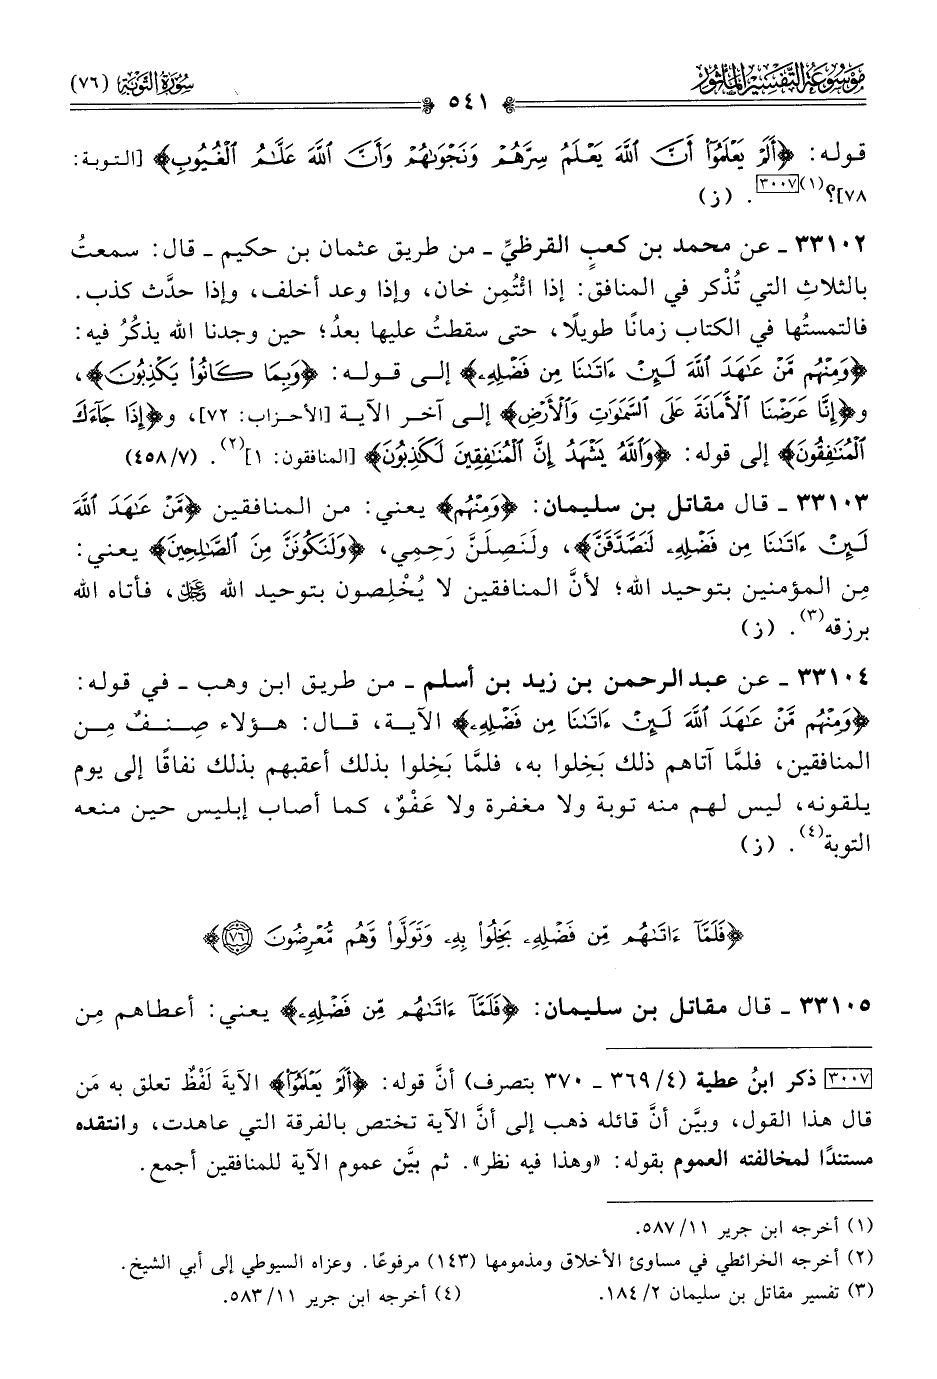 موسوعة التفسير المأثور
٥٤١
سورة التوبة (٧٦)
قوله: ﴿أَلَمۡ يَعۡلَمُوٓاْ أَنَّ ٱللَّهَ يَعۡلَمُ سِرَّهُمۡ وَنَجۡوَىٰهُمۡ وَأَنَّ ٱللَّهَ عَلَّٰمُ ٱلۡغُيُوبِ﴾ [التوبة:
٧٨]؟(١)[٣٠٠٧]. (ز)
٣٣١٠٢ ـ عن محمد بن كعبٍ القرظيِّ ـ من طريق عثمان بن حكيم ـ قال: سمعتُ
بالثلاثِ التي تُذْكر في المنافق: إذا ائْتُمِن خان، وإذا وعد أخلف، وإذا حدَّث كذب.
فالتمستُها في الكتاب زمانًا طويلًا، حتى سقطتُ عليها بعدُ؛ حين وجدنا الله يذكُرُ فيه:
﴿وَمِنۡهُم مَّنۡ عَٰهَدَ ٱللَّهَ لَئِنۡ ءَاتَىٰنَا مِن فَضۡلِهِۦ﴾ إلى قوله: ﴿وَبِمَا كَانُواْ يَكۡذِبُونَ﴾،
و﴿إِنَّا عَرَضۡنَا ٱلۡأَمَانَةَ عَلَى ٱلسَّمَٰوَٰتِ وَٱلۡأَرۡضِ﴾ إلى آخر الآية [الأحزاب: ٧٢]، و﴿إِذَا جَآءَكَ
ٱلۡمُنَٰفِقُونَ﴾ إلى قوله: ﴿وَٱللَّهُ يَشۡهَدُ إِنَّ ٱلۡمُنَٰفِقِينَ لَكَٰذِبُونَ﴾ [المنافقون: ١](٢). (٤٥٨/٧)
٣٣١٠٣ ـ قال مقاتل بن سليمان: ﴿وَمِنۡهُم﴾ يعني: من المنافقين ﴿مَّنۡ عَٰهَدَ ٱللَّهَ
لَئِنۡ ءَاتَىٰنَا مِن فَضۡلِهِۦ لَنَصَّدَّقَنَّ﴾، ولَنَصِلَنَّ رَحِمِي، ﴿وَلَنَكُونَنَّ مِنَ ٱلصَّٰلِحِينَ﴾ يعني:
مِن المؤمنين بتوحيد الله؛ لأنَّ المنافقين لا يُخْلِصون بتوحيد الله ﷿، فأتاه الله
برزقه(٣). (ز)
٣٣١٠٤ ـ عن عبد الرحمن بن زيد بن أسلم ـ من طريق ابن وهب ـ في قوله:
﴿وَمِنۡهُم مَّنۡ عَٰهَدَ ٱللَّهَ لَئِنۡ ءَاتَىٰنَا مِن فَضۡلِهِۦ﴾ الآية، قال: هؤلاء صِنفٌ مِن
المنافقين، فلمَّا آتاهم ذلك بَخِلوا به، فلمَّا بَخِلوا بذلك أعقبهم بذلك نفاقًا إلى يوم
يلقونه، ليس لهم منه توبة ولا مغفرة ولا عَفْوٌ، كما أصاب إبليس حين منعه
التوبة(٤). (ز)
﴿فَلَمَّآ ءَاتَىٰهُم مِّن فَضۡلِهِۦ بَخِلُواْ بِهِۦ وَتَوَلَّواْ وَّهُم مُّعۡرِضُونَ ٧٦﴾
٣٣١٠٥ ـ قال مقاتل بن سليمان: ﴿فَلَمَّآ ءَاتَىٰهُم مِّن فَضۡلِهِۦ﴾ يعني: أعطاهم مِن
[٣٠٠٧] ذكر ابنُ عطية (٤/ ٣٦٩ ـ ٣٧٠ بتصرف) أنَّ قوله: ﴿أَلَمۡ يَعۡلَمُوٓاْ﴾ الآيةَ لَفْظٌ تعلق به مَن
قال هذا القول، وبيَّن أنَّ قائله ذهب إلى أنَّ الآية تختص بالفرقة التي عاهدت، وانتقده
مستندًا لمخالفته العموم بقوله: «وهذا فيه نظر». ثم بيَّن عموم الآية للمنافقين أجمع.
(١) أخرجه ابن جرير ١١/ ٥٨٧.
(٢) أخرجه الخرائطي في مساوئ الأخلاق ومذمومها (١٤٣) مرفوعًا. وعزاه السيوطي إلى أبي الشيخ.
(٣) تفسير مقاتل بن سليمان ٢/ ١٨٤. (٤) أخرجه ابن جرير ١١/ ٥٨٣.